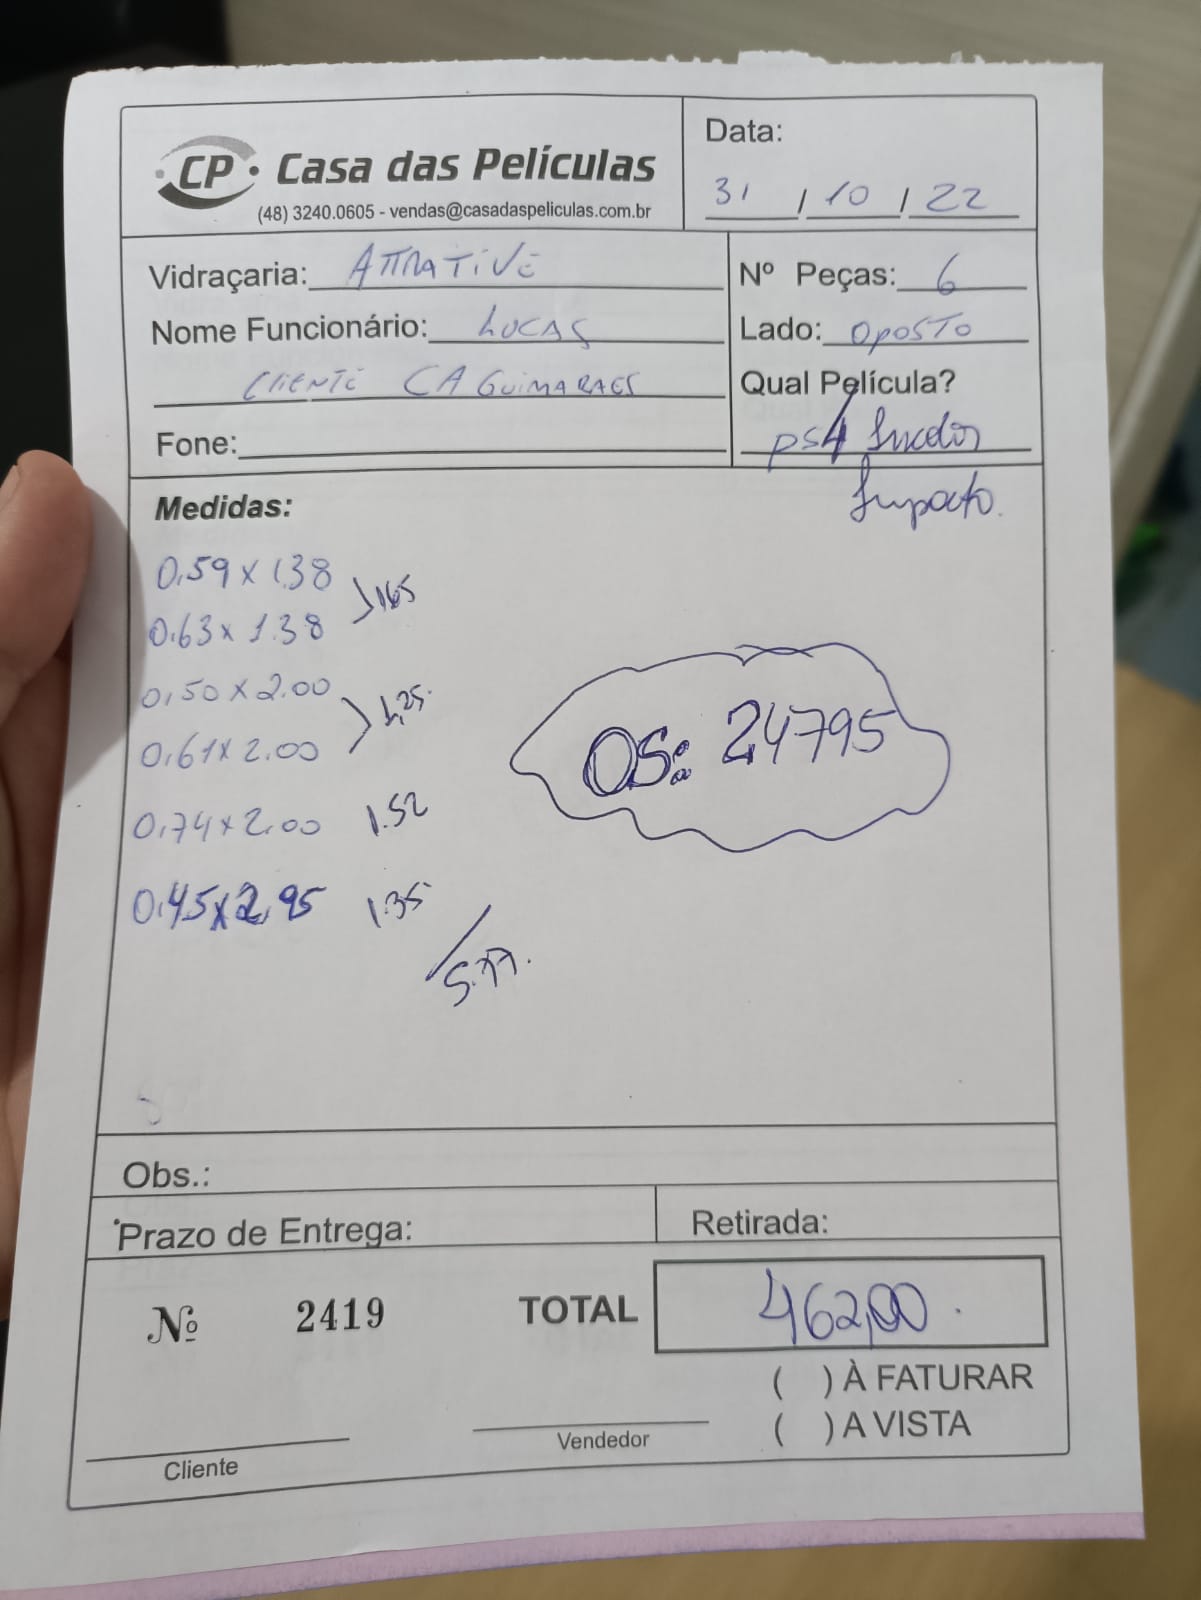 CP Casa das Películas
(48) 3240.0605 - vendas@casadaspeliculas.com.br
Data:
31 / 10 / 22
Vidraçaria: ATTRATIVE
Nome Funcionário: LUCAS
CLIENTE CA GUIMARAES
Fone:
Nº Peças: 6
Lado: OPOSTO
Qual Película?
PS4 Incolor
Impacto.
Medidas:
0,59 x 1.38
0.63 x 1.38 > 1.65
0,50 x 2.00
0,61 x 2.00 > 2,25.
0,74 x 2.00 1.52
0,45 x 2,95 1.35
5.77.
OS: 24795
Obs.:
Prazo de Entrega:
Retirada:
Nº 2419
TOTAL 462,00.
( ) À FATURAR
( ) A VISTA
Cliente
Vendedor